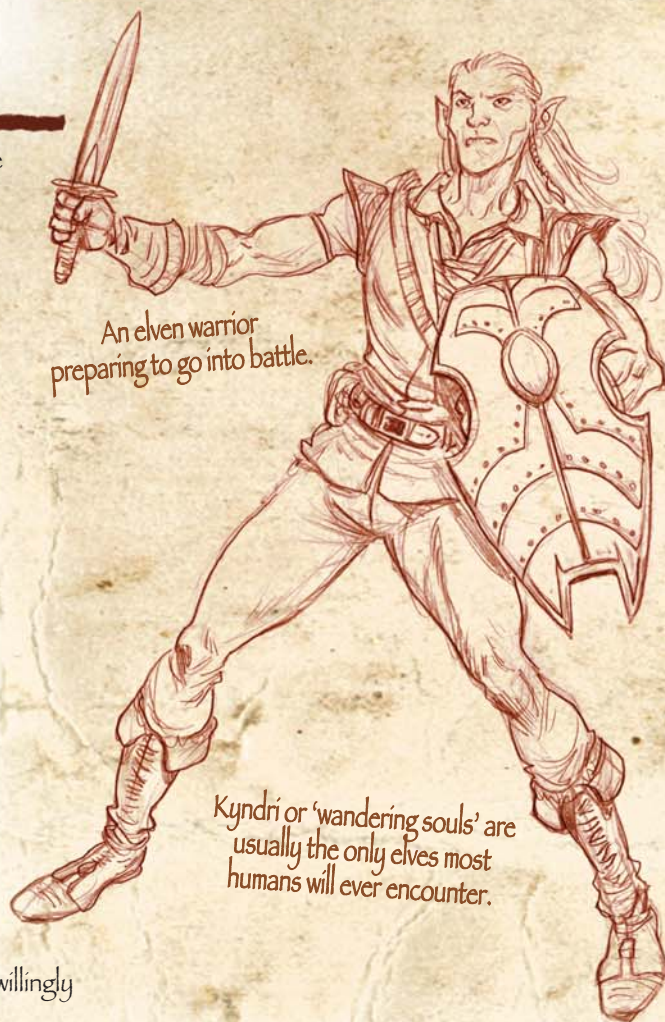 An elven warrior
preparing to go into battle.
Kyndri or ‘wandering souls’ are
usually the only elves most
humans will ever encounter.
willingly